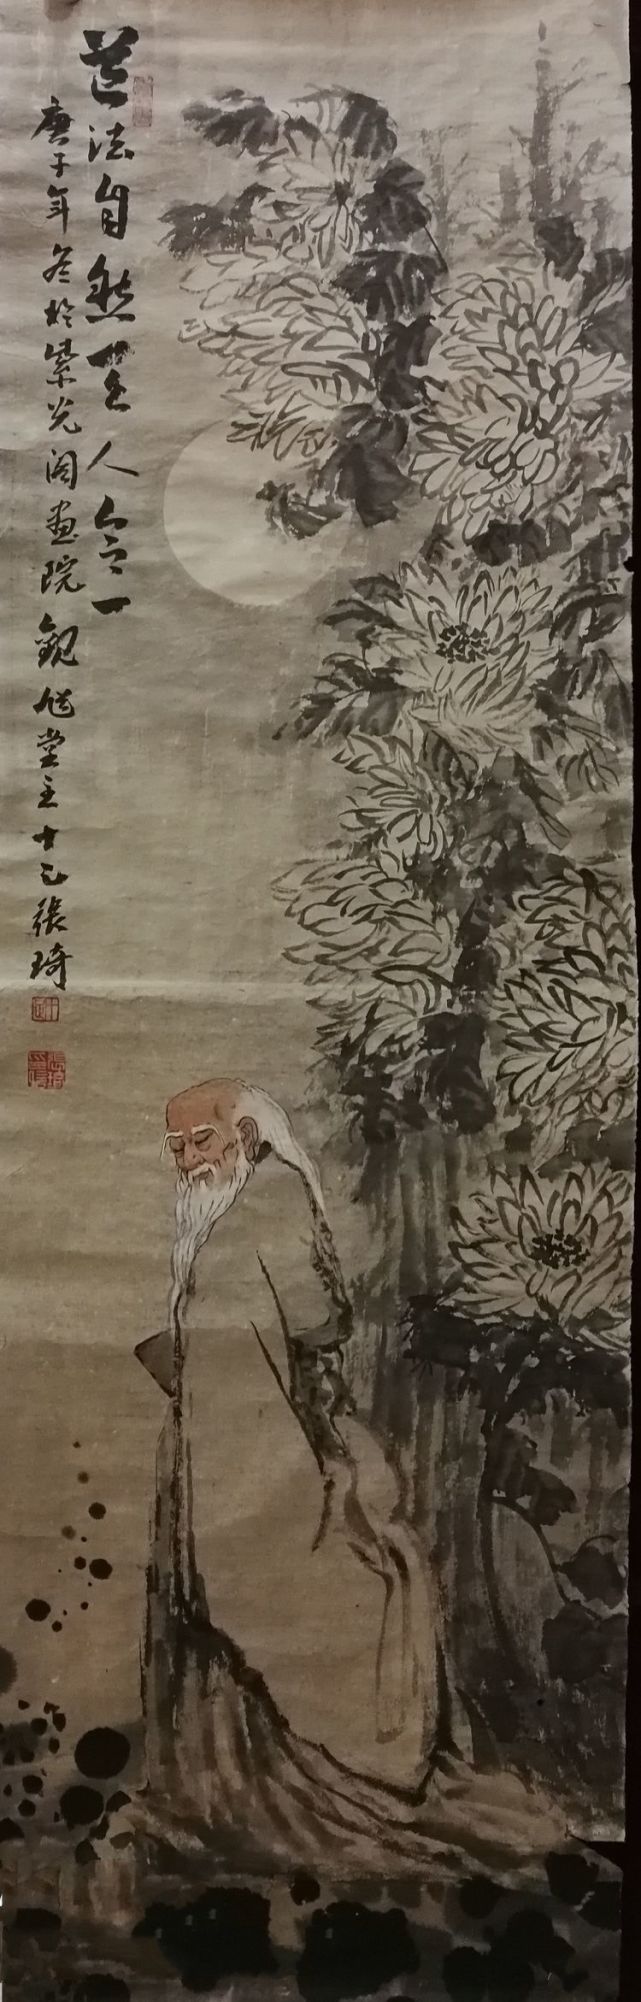 道法自然天人合一
庚子年冬於紫光阁画院觀旭堂主十乙張琦